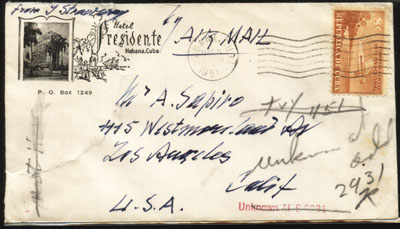 from
by
Hotel
Presidente
Habana, Cuba
AIR MAIL
1951
REPUBLICA DE CUBA
P. O. Box 1249
Mr A. Sapiro
Try 1151
415 Westmoreland Av
Los Angeles
Unknown
Calif
2931
U.S.A.
Unknown At S